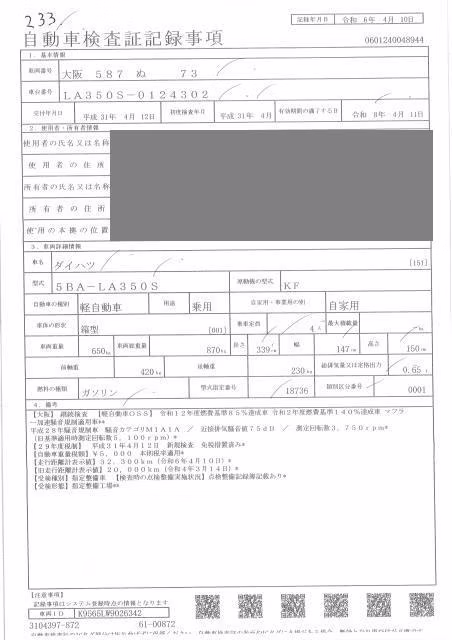 233.
記録年月日 令和 6年 4月 10日
自動車検査証記録事項
0601240048944
1. 基本情報
車両番号 大阪 587 ぬ 73
車台番号 LA350S-0124302
交付年月日 平成 31年 4月 12日 初度検査年月 平成 31年 4月 有効期間の満了する日 令和 8年 4月 11日
2. 使用者・所有者情報
使用者の氏名又は名称
使用者の住所
所有者の氏名又は名称
所有者の住所
使用の本拠の位置
3. 車両詳細情報
車名 ダイハツ [151]
型式 5BA-LA350S 原動機の型式 KF
自動車の種別 軽自動車 用途 乗用 自家用・事業用の別 自家用
車体の形状 箱型 [001] 乗車定員 4人 最大積載量 kg
車両重量 650kg 車両総重量 870kg 長さ 339cm 幅 147cm 高さ 150cm
前軸重 420kg 後軸重 230kg 総排気量又は定格出力 0.65 L
燃料の種類 ガソリン 型式指定番号 18736 類別区分番号 0001
4. 備考
【大阪】 継続検査 【軽自動車OSS】 令和12年度燃費基準85%達成車 令和2年度燃費基準140%達成車 マフラ
ー加速騒音規制適用車**
平成28年騒音規制車 騒音カテゴリM1A1A ／ 近接排気騒音値75dB ／ 測定回転数3,750rpm*
(旧基準適用時測定回転数5,100rpm)*
【29年度税制】 平成31年4月12日 新規検査 免税措置済み*
【自動車重量税額】¥5,000 本則税率適用*
【走行距離計表示値】32,300km(令和6年4月10日)*
【旧走行距離計表示値】20,000km(令和4年3月14日)*
【受検種別】指定整備車 【検査時の点検整備実施状況】点検整備記録簿記載あり*
【受検形態】指定整備工場**
【注意事項】
記録事項はシステム登録時点の情報となります
車両ID K9565LW9026342
3104397-872 61-00872